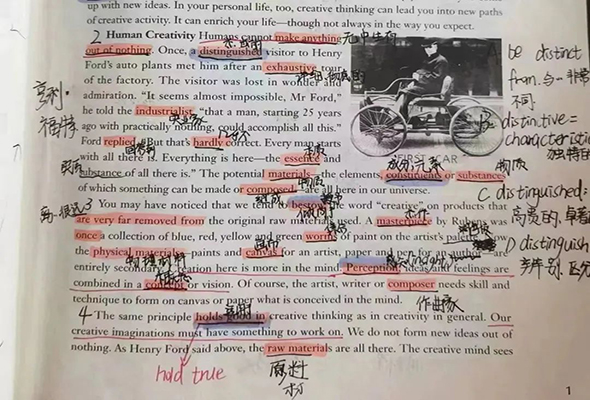 up with new ideas. In your personal life, too, creative thinking can lead you into new paths
of creative activity. It can enrich your life—though not always in the way you expect.
2 Human Creativity Humans cannot make anything 无中生有
out of nothing. Once, a distinguished visitor to Henry
Ford's auto plants met him after an exhaustive tour
of the factory. The visitor was lost in wonder and
admiration. "It seems almost impossible, Mr Ford," 亨利·
he told the industrialist, "that a man, starting 25 years 福特
ago with practically nothing, could accomplish all this."
Ford replied, "But that's hardly correct. Every man starts
with all there is. Everything is here—the essence and
substance of all there is." The potential materials—the elements, constituents or substances
of which something can be made or composed—are all here in our universe.
3 You may have noticed that we tend to bestow the word "creative" on products that
are very far removed from the original raw materials used. A masterpiece by Rubens was
once a collection of blue, red, yellow and green worms of paint on the artist's palette. Now
the physical materials—paints and canvas for an artist, paper and pen for an author—are
entirely secondary. Creation here is more in the mind. Perception, ideas and feelings are
combined in a concept or vision. Of course, the artist, writer or composer needs skill and
technique to form on canvas or paper what is conceived in the mind.
作曲家
4 The same principle holds good in creative thinking as in creativity in general. Our
creative imaginations must have something to work on. We do not form new ideas out of
nothing. As Henry Ford said above, the raw materials are all there. The creative mind sees
hold true
原料
FIRST CAR
be distinct
from. 与
不同
B. distinctive =
characteristic
独特的
物质
C. distinguished:
高贵的, 卓著
D distinguish
辨别, 区分
1